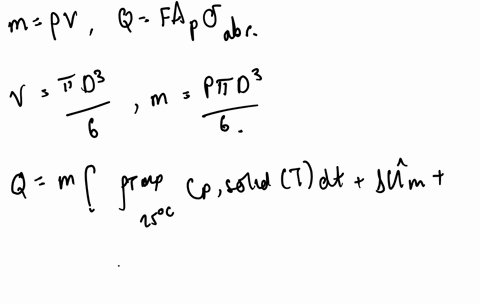 m = ρV, Q = FA_p σ_abr.
V = πD³/6, m = PπD³/6.
Q = m[ ∫_25°C^Tmp Cp,solid (T) dt + ΔÛm +